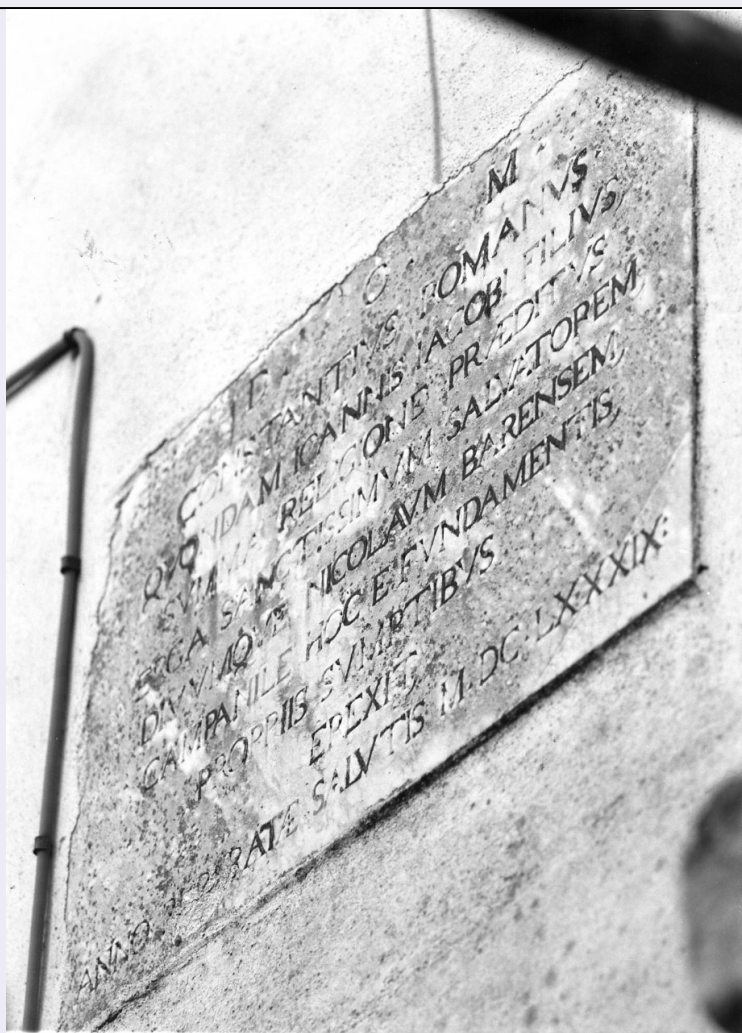 D · O · M ·
CONSTANTIVS ROMANVS
QVONDAM IOANNIS IACOBI FILIVS,
SVMMA RELIGIONE PRÆDITVS
ERGA SANCTISSIMVM SALVATOREM,
DIVVMQVE NICOLAVM BARENSEM,
CAMPANILE HOC E FVNDAMENTIS,
PROPRIIS SVMPTIBVS
EREXIT
ANNO REPARATE SALVTIS M·DC·LXXXIX·